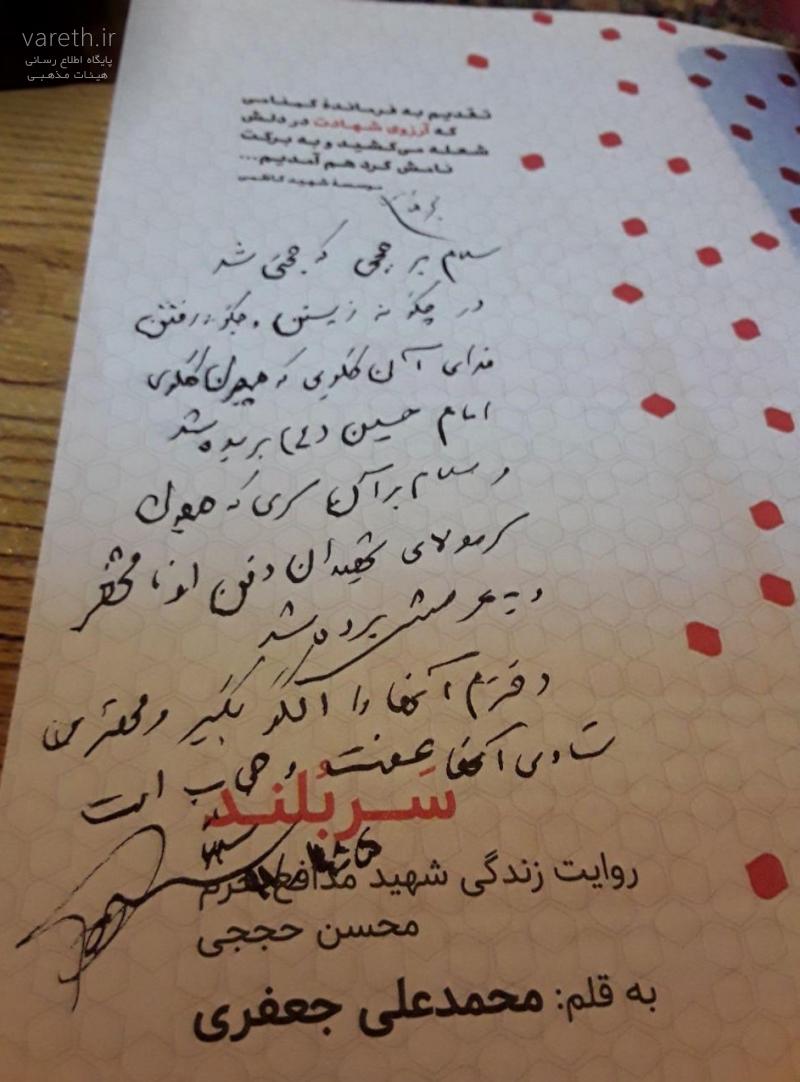 vareth.ir
پایگاه اطلاع رسانی
هیئات مذهبی
تقدیم به فرماندهٔ گمنامی
که آرزوی شهادت در دلش
شعله می‌کشید و به برکت
نامش گرد هم آمدیم...
موسسهٔ شهید کاظمی
سلام بر حججی که حجتی شد
در چگونه زیستن و چگونه رفتن
فدای آن گلویی که همچون گلوی
امام حسین (ع) بریده شد
و سلام بر آن سری که همچون
سر مولای شهیدان دفن آن نامشخص
و به عرصش برده شد
دخترم آنها را الگو بگیر و مهمترین
شادی آنها عفت و حجاب است
سربلند
روایت زندگی شهید مدافع حرم
محسن حججی
به قلم: محمدعلی جعفری